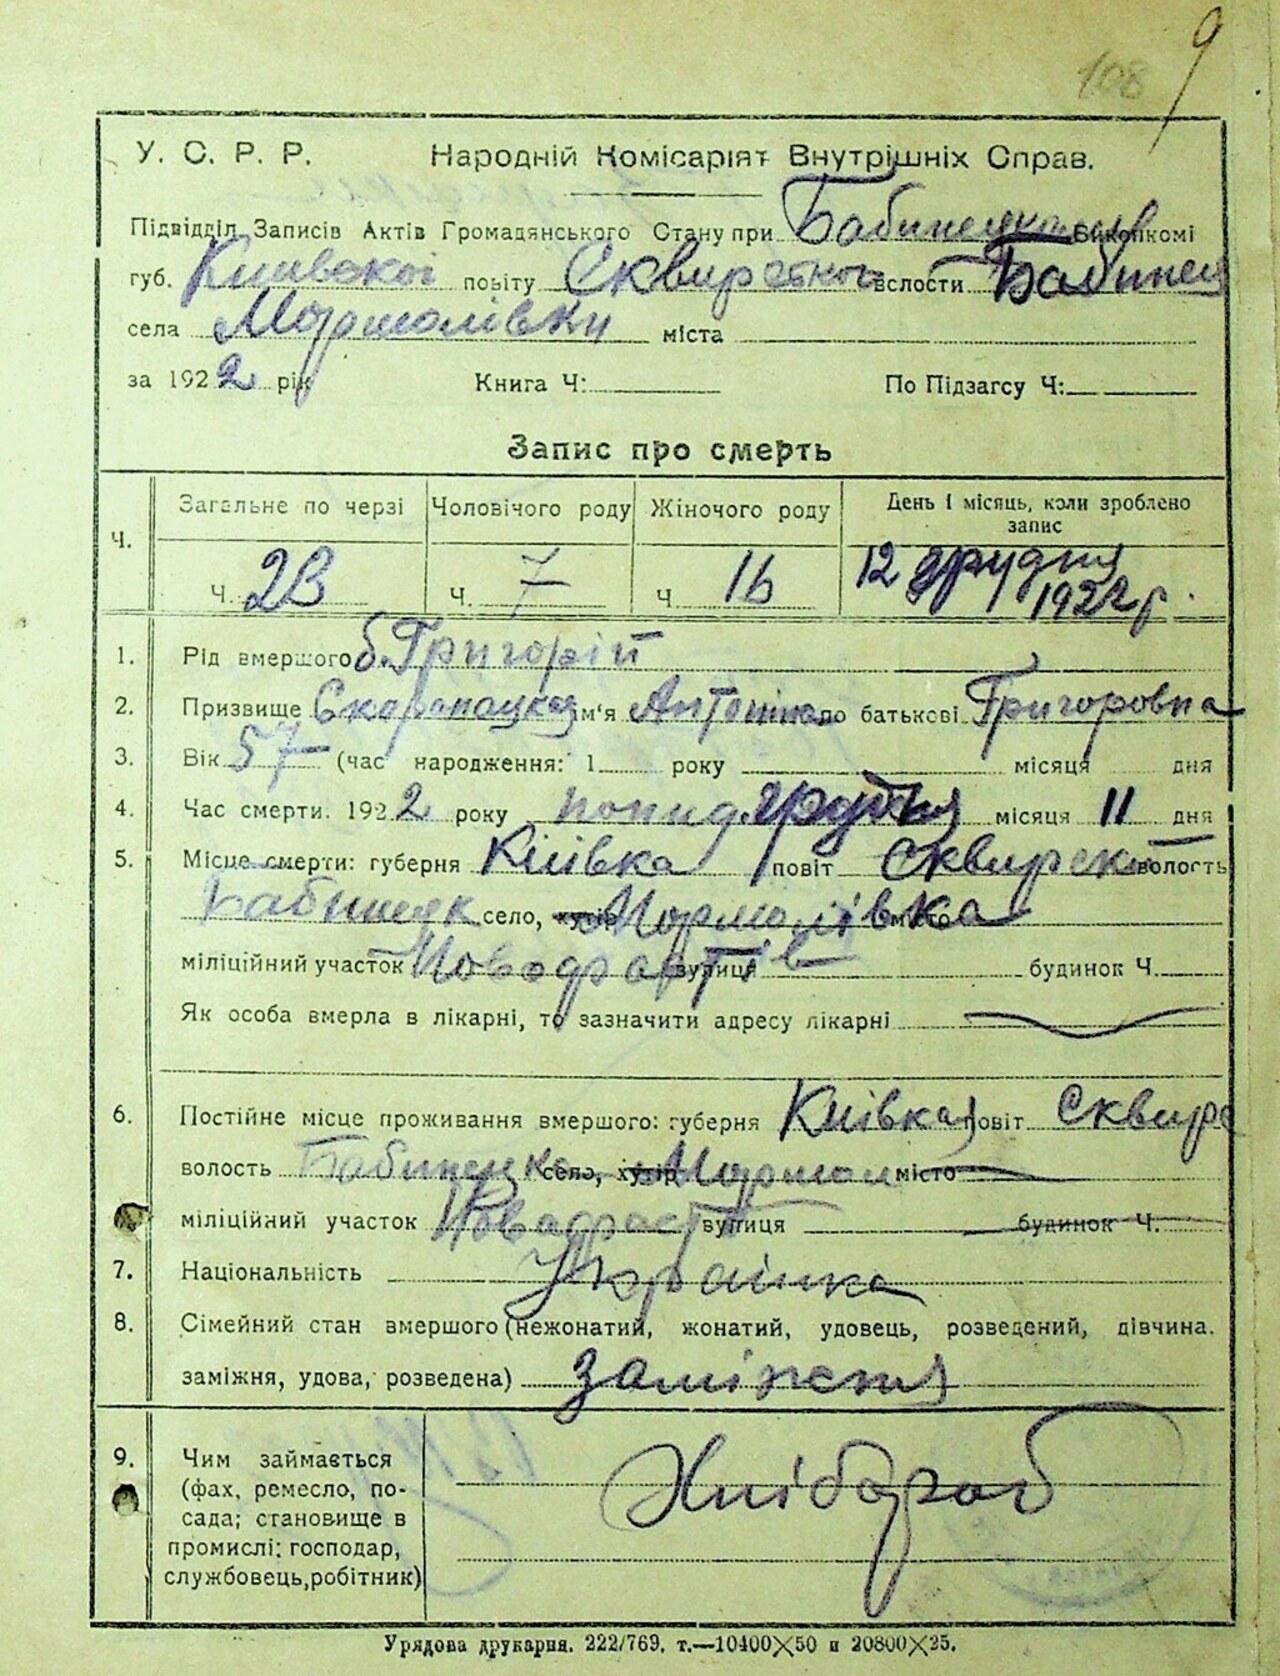 9
108
У. С. Р. Р. Народній Комісаріят Внутрішніх Справ.
Підвідділ Записів Актів Громадянського Стану при Бабинецком Виконкомі
губ. Київскої повіту Сквирсткої волости Бабинец
села Моршолівки міста
за 1922 рік Книга Ч: По Підзагсу Ч:
Запис про смерть
Ч. Загальне по черзі Чоловічого роду Жіночого роду День і місяць, коли зроблено запис
Ч. 23 Ч. 7 Ч 16 12 грудня 1922 г.
1. Рід вмершого б. Григорій
2. Призвище ім'я Антоніна по батькові Григоровна
3. Вік 57 (час народження: 1 року місяця дня
4. Час смерти. 1922 року грудня місяця 11 дня
5. Місце смерти: губерня Київка повіт Сквирск волость
Бабинецк село, хутір місто
міліційний участок вулиця будинок Ч.
Як особа вмерла в лікарні, то зазначити адресу лікарні
6. Постійне місце проживання вмершого: губерня Київкая повіт Сквирс
волость Бабинецка село, хутір місто
міліційний участок вулиця будинок Ч.
7. Національність Украінка
8. Сімейний стан вмершого (нежонатий, жонатий, удовець, розведений, дівчина.
заміжня, удова, розведена) заміжня
9. Чим займається
(фах, ремесло, по-
сада; становище в
промислі: господар,
службовець, робітник)
Хлібороб
Урядова друкарня. 222/769. т.—10400×50 и 20800×25.